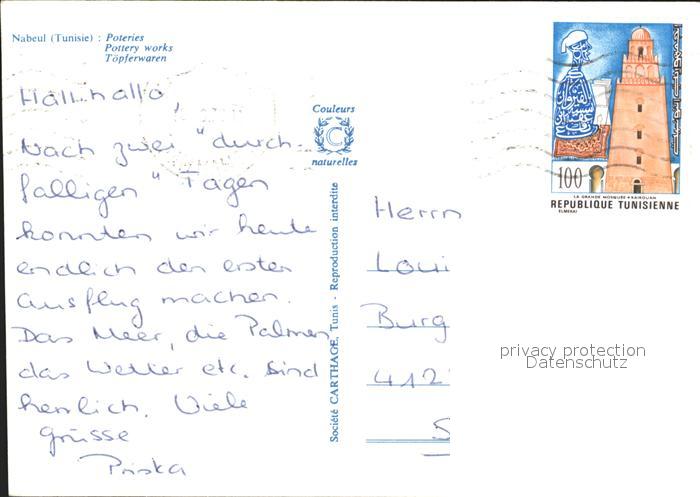 Nabeul (Tunisie) : Poteries
Pottery works
Töpferwaren
Hallihallo,
Nach zwei "durch-
fälligen" Tagen
konnten wir heute
endlich den ersten
Ausflug machen.
Das Meer, die Palmen,
das Wetter etc. sind
herrlich. Viele
Grüsse
Priska
Couleurs
C
naturelles
Société CARTHAGE, Tunis - Reproduction interdite
100
LA GRANDE MOSQUÉE * KAIROUAN
REPUBLIQUE TUNISIENNE
ELMEKKI
Herrn
Loui
Burg
412
S
privacy protection
Datenschutz